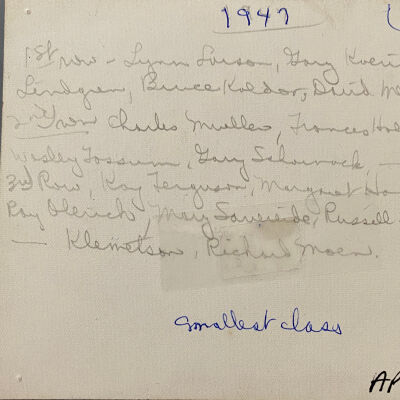 1947
1st row - Lynn Larson, Gary
Lindgren, Bruce Koldor, David
2nd row Charles Muller, Frances
Wesley Fossum, Gary —
3rd Row, Kay Ferguson, Margaret
Ray Olerich, Mary Russell
— Klemetson, Richard Moen.
smallest class